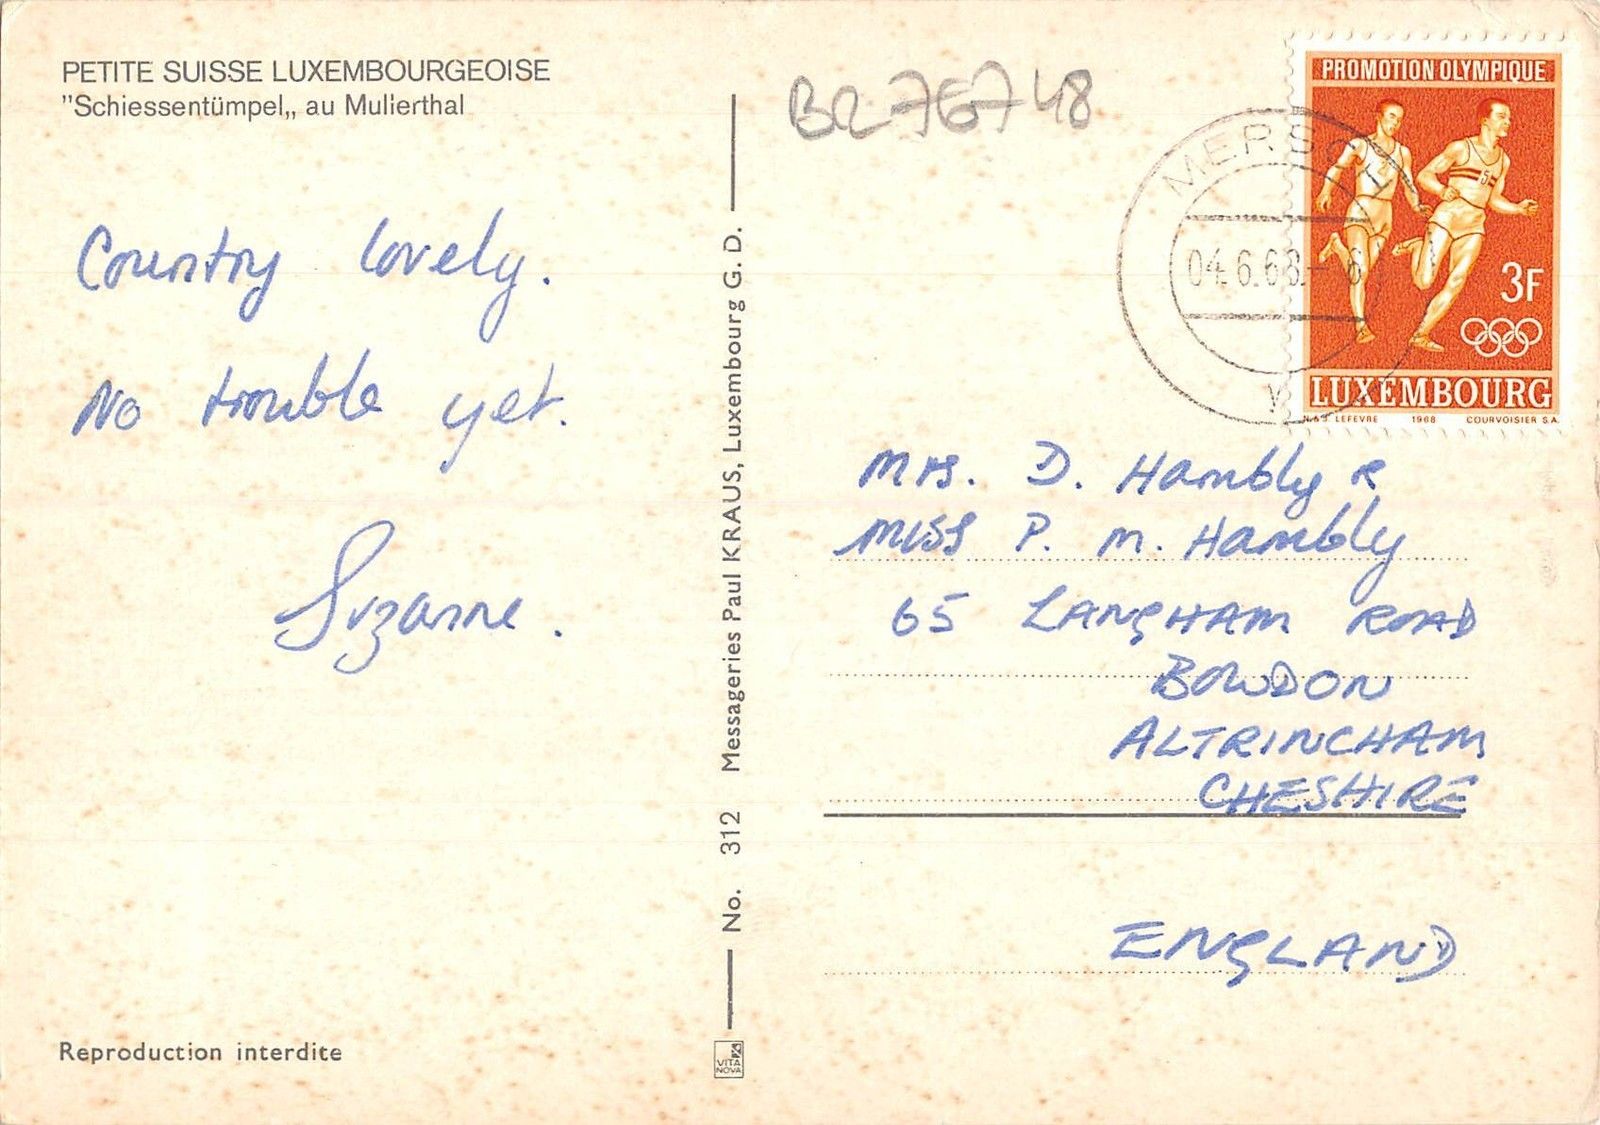 PETITE SUISSE LUXEMBOURGEOISE
"Schiessentümpel„ au Mullerthal
B2 76748
Country lovely.
No trouble yet.
Suzanne.
Reproduction interdite
No. 312 Messageries Paul KRAUS, Luxembourg G. D.
VITA
NOVA
MERSCH
04.6.68.- 6
V
PROMOTION OLYMPIQUE
5
3F
LUXEMBOURG
N. & J. LEFEVRE 1968 COURVOISIER S.A.
Mrs. D. Hambly &
Miss P. M. Hambly
65 LANGHAM ROAD
BOWDON
ALTRINCHAM
CHESHIRE
ENGLAND